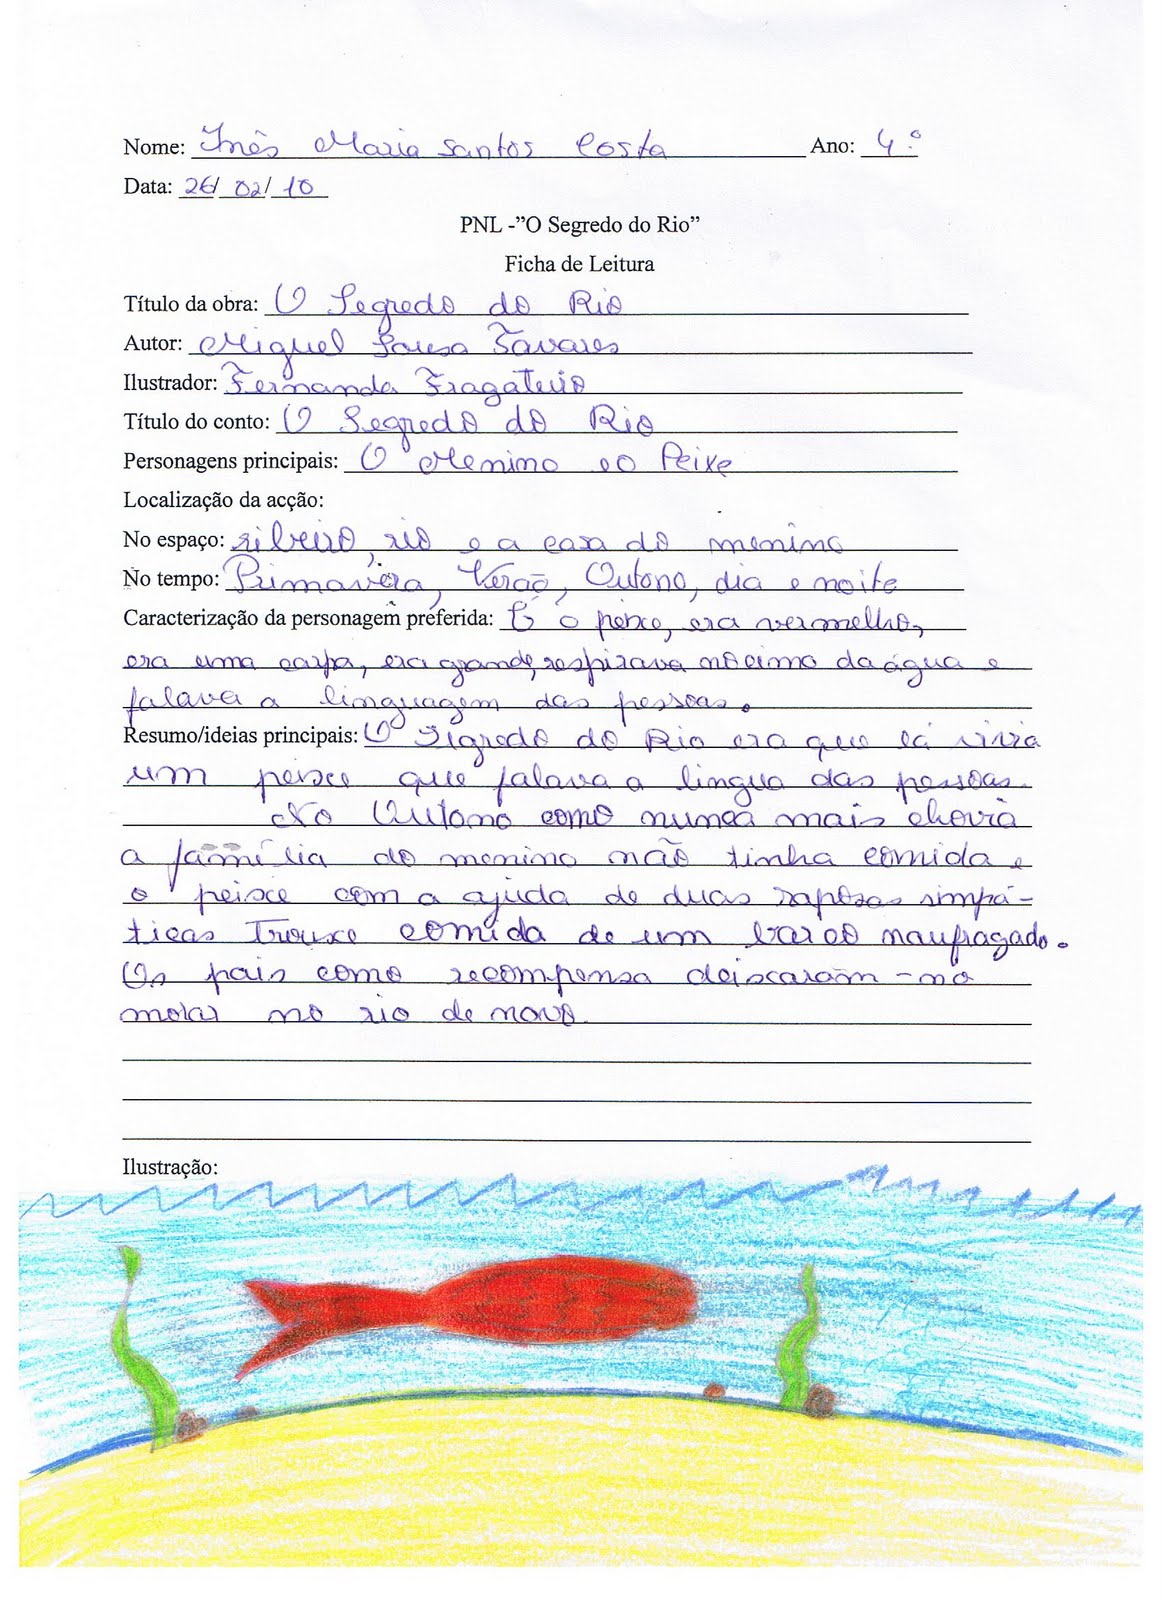 Nome: Inês Maria Santos Costa Ano: 4.º
Data: 26/ 02/ 10
PNL -"O Segredo do Rio"
Ficha de Leitura
Título da obra: O Segredo do Rio
Autor: Miguel Sousa Tavares
Ilustrador: Fernanda Fragateiro
Título do conto: O Segredo do Rio
Personagens principais: O Menino e o Peixe
Localização da acção:
No espaço: ribeiro, rio e a casa do menino
No tempo: Primavera, Verão, Outono, dia e noite
Caracterização da personagem preferida: É o peixe, era vermelho,
era uma carpa, era grande, respirava no cimo da água e
falava a linguagem das pessoas.
Resumo/ideias principais: O Sigredo do Rio era que lá vivia
um peixe que falava a lingua das pessoas.
No Outono como nunca mais chovia
a família do menino não tinha comida e
o peixe com a ajuda de duas raposas simpá-
ticas trouxe comida de um barco naufragado.
Os pais como recompensa deixaram-no
morar no rio de novo.
Ilustração: